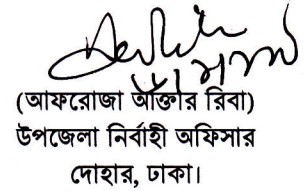 (আফরোজা আক্তার রিবা)
উপজেলা নির্বাহী অফিসার
দোহার, ঢাকা।